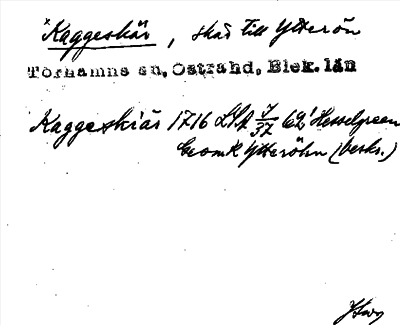 *Kaggeskär, skär till Ytterön
Torhamns sn, Östra hd, Blek. län
Kaggeskiär 1716 LSA 7/37 62¹ Hesselgreen
Geom K Ytteröhn (beskr.)